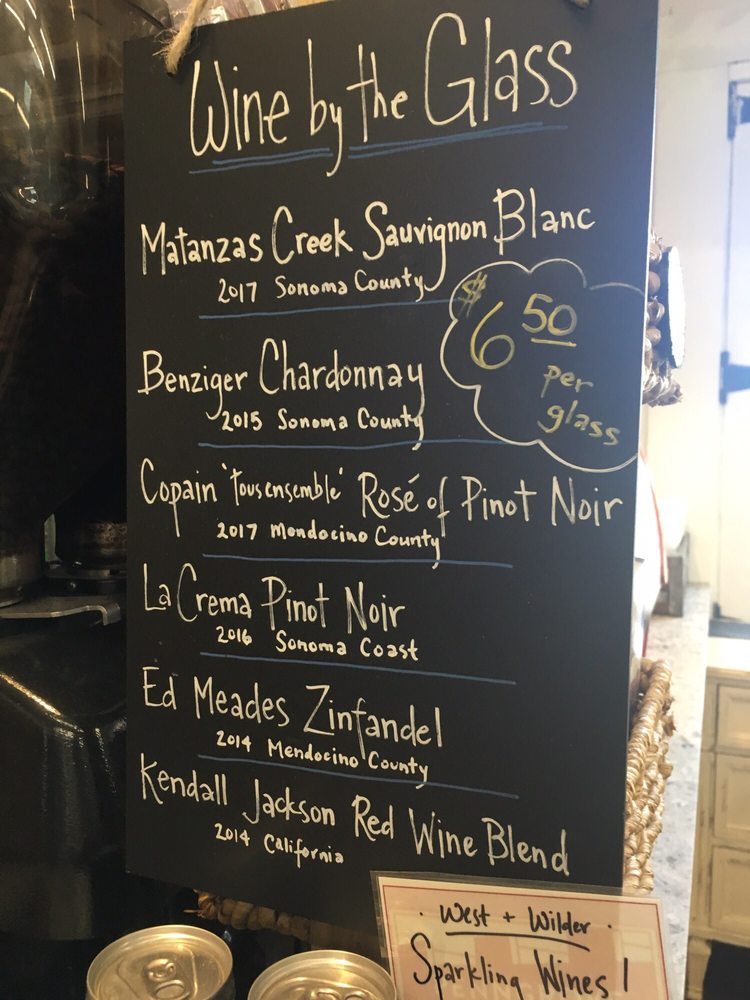 Wine by the Glass
Matanzas Creek Sauvignon Blanc
2017 Sonoma County
$6 50
per
glass
Benziger Chardonnay
2015 Sonoma County
Copain "Tous ensemble" Rosé of Pinot Noir
2017 Mendocino County
La Crema Pinot Noir
2016 Sonoma Coast
Ed Meades Zinfandel
2014 Mendocino County
Kendall Jackson Red Wine Blend
2014 California
· West + Wilder ·
Sparkling Wines!